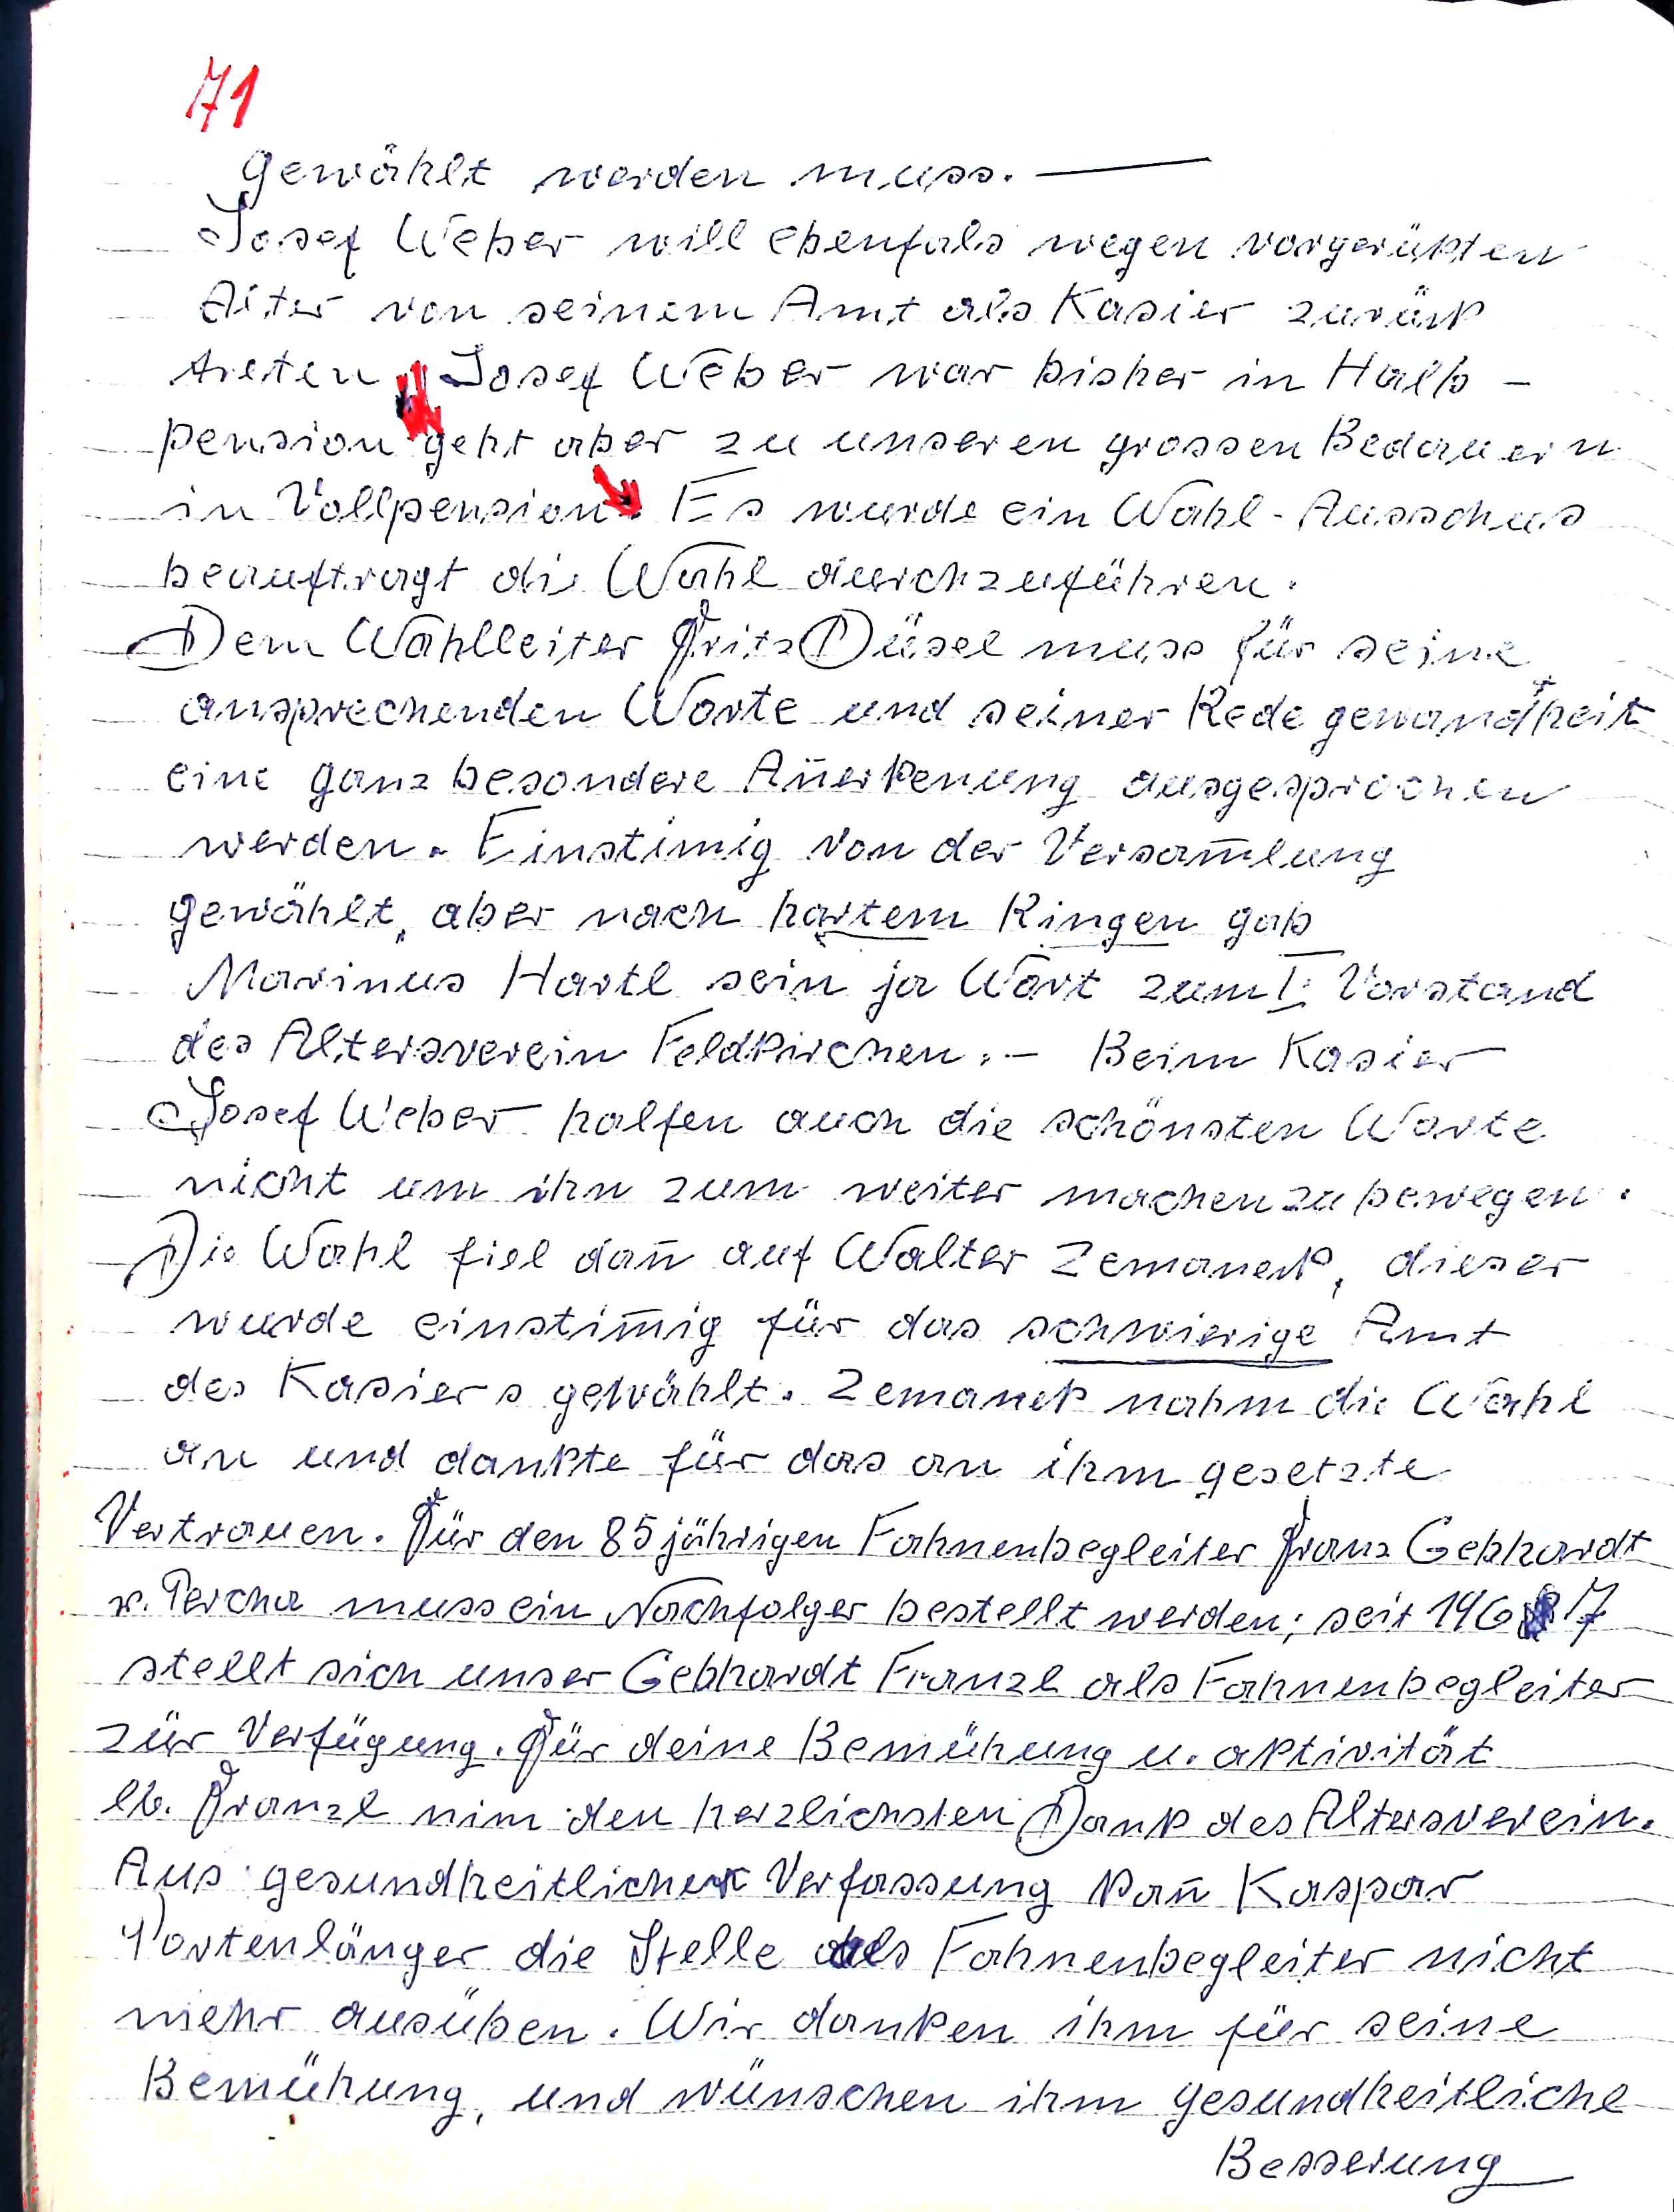 71
gewählt werden muss. —
Josef Weber will ebenfals wegen vorgerükten
Alter von seinem Amt als Kasier zurük
treten, Josef Weber war bisher in Halb-
pension geht aber zu unseren grossen Bedauern
in Vollpension. Es wurde ein Wahl-Ausschus
beauftragt die Wahl durchzuführen.
Dem Wahlleiter Fritz Düsel muss für seine
ansprechenden Worte und seiner Rede gewandtheit
eine ganz besondere An̄erkenung ausgesprochen
werden. Einstimig von der Versam̄lung
gewählt, aber nach hartem Ringen gab
Marinus Hartl sein ja Wort zum I. Vorstand
des Altersverein Feldkirchen. – Beim Kasier
Josef Weber halfen auch die schönsten Worte
nicht um ihn zum weiter machen zu bewegen.
Die Wahl fiel dan̄ auf Walter Zemanek, dieser
wurde einstim̄ig für das schwierige Amt
des Kasiers gewählt. Zemanek nahm die Wahl
an und dankte für das an ihm gesetzte
Vertrauen. Für den 85jährigen Fahnenbegleiter Franz Gebhardt
v. Percha muss ein Nachfolger bestellt werden; seit 1967
stellt sich unser Gebhardt Franzl als Fahnenbegleiter
zür Verfügung. Für deine Bemühung u. aktivität
lb. Franzl nim den herzlichsten Dank des Altersverein.
Aus gesundheitlicher Verfassung kan̄ Kaspar
Portenlänger die Stelle als Fahnenbegleiter nicht
mehr ausüben. Wir danken ihm für seine
Bemühung, und wünschen ihm gesundheitliche
Besserung